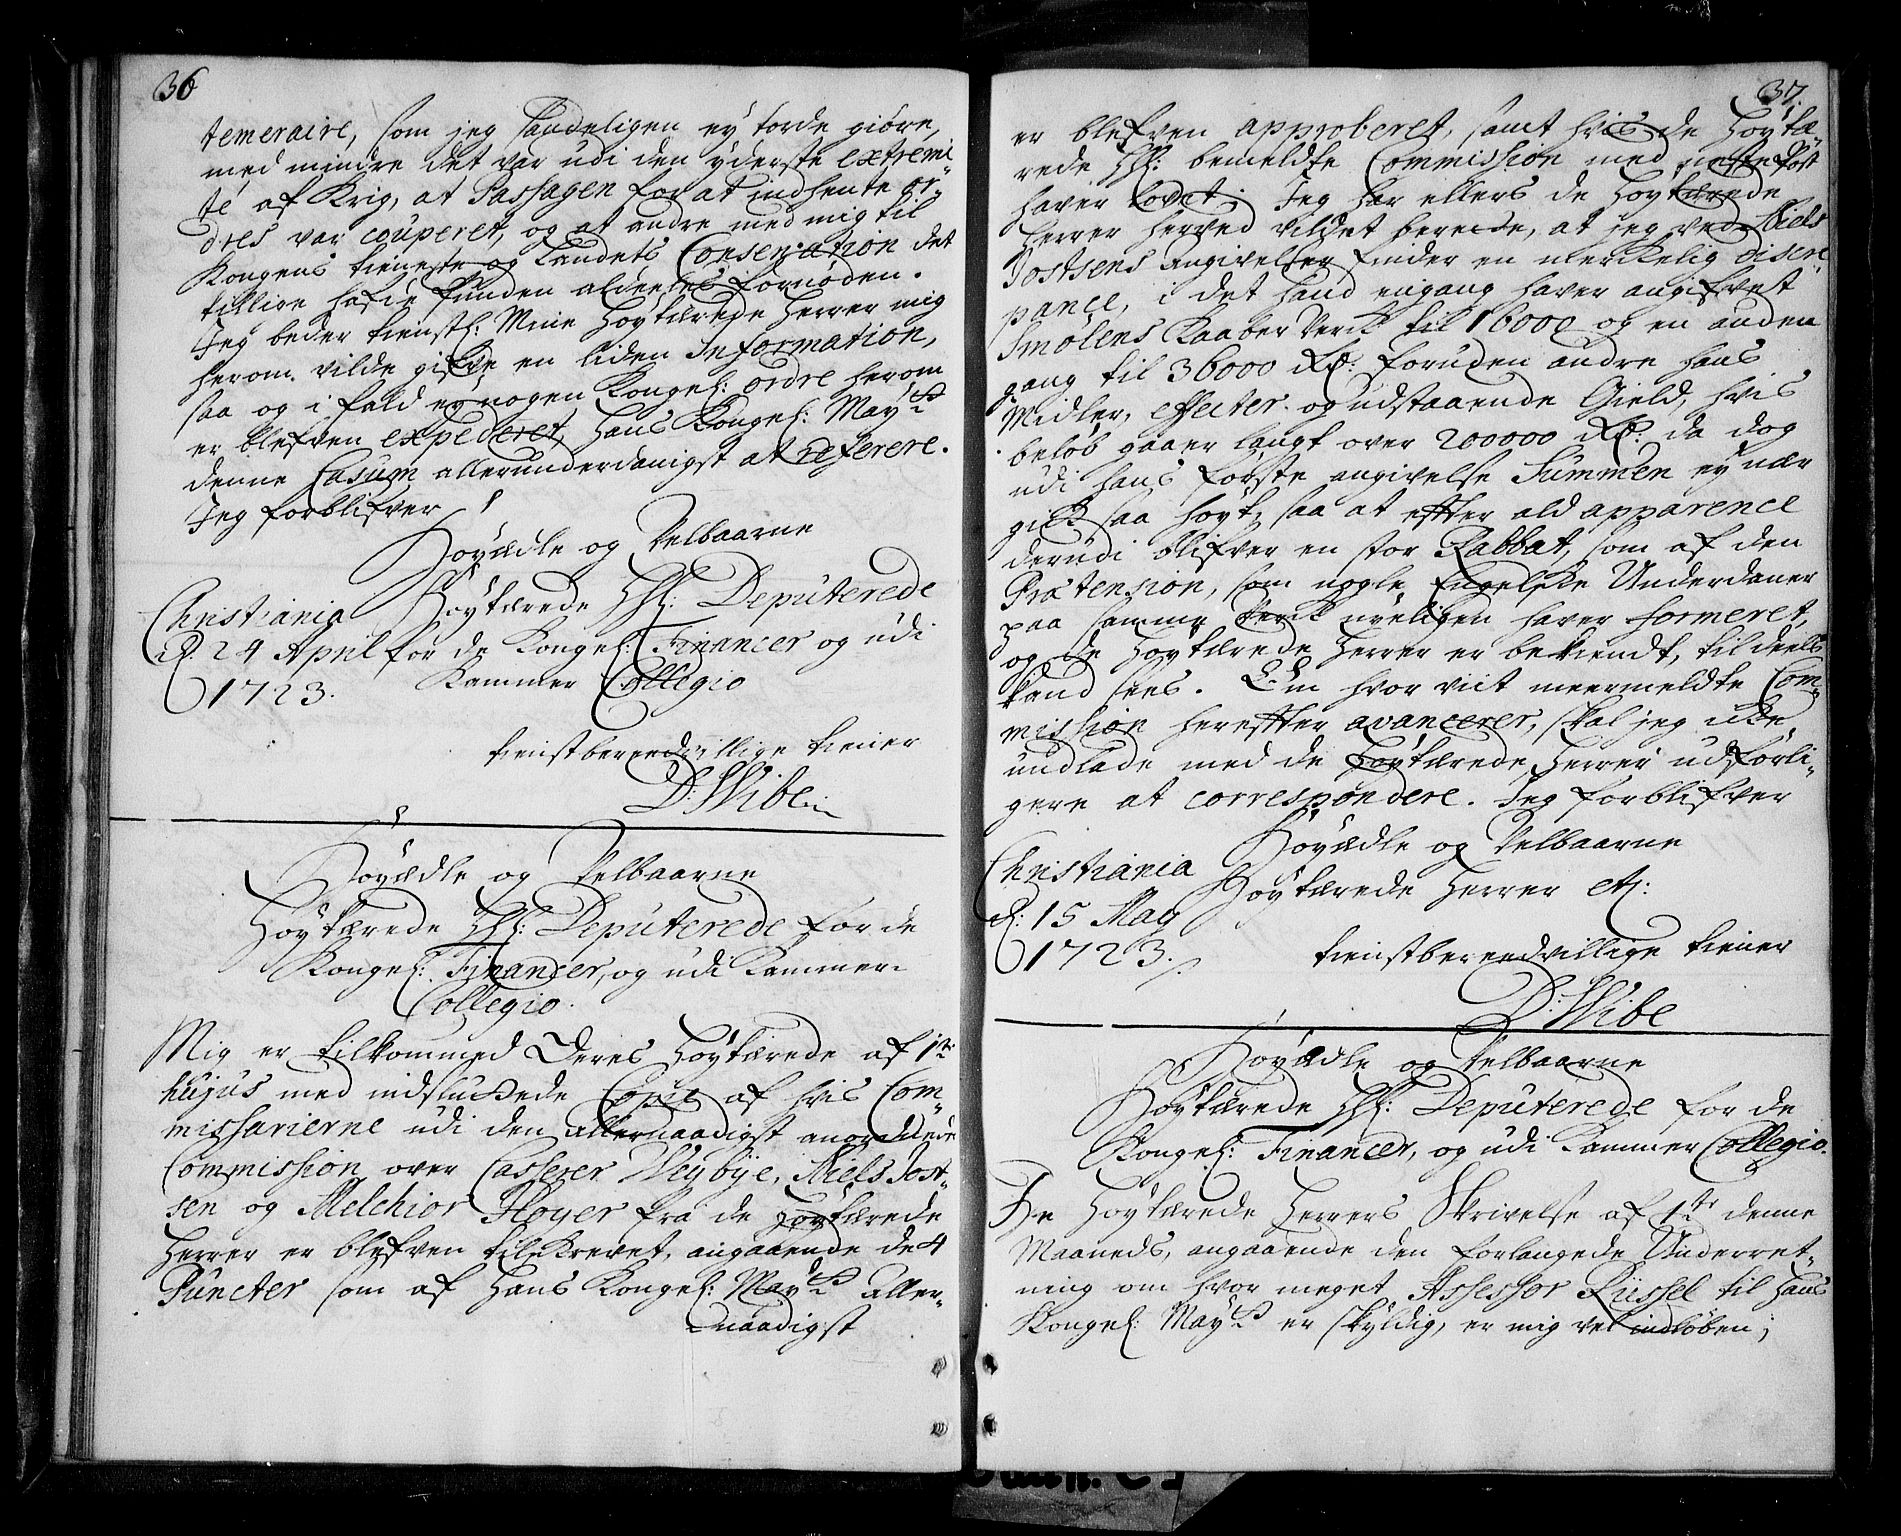 36
temeraire, som jeg sandeligen ey torde giøre,
med mindre det var udi den yderste extremi-
té af Krig, at Passagen for at indhente or-
dres var couperet, og at andre med mig til
Kongens tieneste og Landets Conservation det
tillige hafde funden aldeeles fornøden.
Jeg beder tienstl: Mine Høytærede Herrer mig
herom vilde gifve en liden Information,
saa og i fald ey nogen Kongel: ordre herom
er blefven expederet, Hans Kongel: Mayts
denne Casum allerunderdanigst at referere.
Jeg forblifver
Høyædle og Velbaarne
Høytærede HH: Deputerede
for de Kongel: Financer og udi
Kammer Collegio
Christiania
d. 24 April
1723.
tienstbereedvillige tiener
D: Wibe
Høyædle og Velbaarne
Høytærede HH: Deputerede for de
Kongel: Financer, og udi Kammer-
Collegio.
Mig er tilkommed Deres Høytærede af 1te
hujus med indsluttede Copie af hvis Com-
missarierne udi den allernaadigst anordnede
Commission over Casserer Weybye, Niels Jost-
sen og Melchior Høyer fra de Høytærede
Herrer er blefven tilskrevet, angaaende de 4
Puncter som af Hans Kongel: Mayts aller-
naadigst
37.
er blefven approberet, samt hvis de Høytæ-
rede HH: bemeldte Commission med næste Post
haver lovet. Jeg har ellers de Høytærede
Herrer herved vildet berette, at jeg ved Niels
Jostsens angivelser finder en merkelig discre-
pance, i det hand engang haver angifvet
Smølens Kaaber Verk til 16000 og en anden
gang til 36000 Rd: foruden andre hans
Midler, effecter og udstaaende Gield, hvis
beløb gaaer langt over 200000 Rd: da dog
udi hans første angivelse Summen ey nær
gick saa høyt, saa at effter ald apparence
derudi blifver en stor Rabbat, som af den
Prætension, som nogle Engelske Underdaner
paa samme Verk nyeligen haver formeret,
og de Høytærede Herrer er bekiendt, til deels
kand sees. Om hvor vit meermeldte Com-
mission hereffter avancerer, skal jeg icke
undlade med de Høytærede Herrer udførli-
gere at correspondere. Jeg forblifver
Høyædle og Velbaarne
Høytærede Herrer etc:
Christiania
d: 15 May
1723.
tienstbereedvillige tiener
D: Wibe
Høyædle og Velbaarne
Høytærede HH: Deputerede for de
Kongel: Financer, og udi Kammer Collegio.
De Høytærede Herrers Skrivelse af 1te denne
Maaneds, angaaende den forlangede Underret-
ning om hvor meget Assessor Rüssel til Hans
Kongel: Mayts er skyldig, er mig vel indløben;